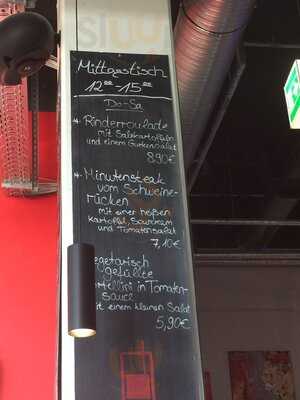 Mittagstisch
12⁰⁰-15⁰⁰
Do-Sa
* Rinderroulade
mit Salzkartoffeln
und einem Gurkensalat
8,90€
* Minutensteak
vom Schweine-
rücken
mit einer heißen
Kartoffel, Sourcream
und Tomatensalat
7,10€
Vegetarisch
gefüllte
Tortellini in Tomaten-
sauce
mit einem kleinen Salat
5,90€